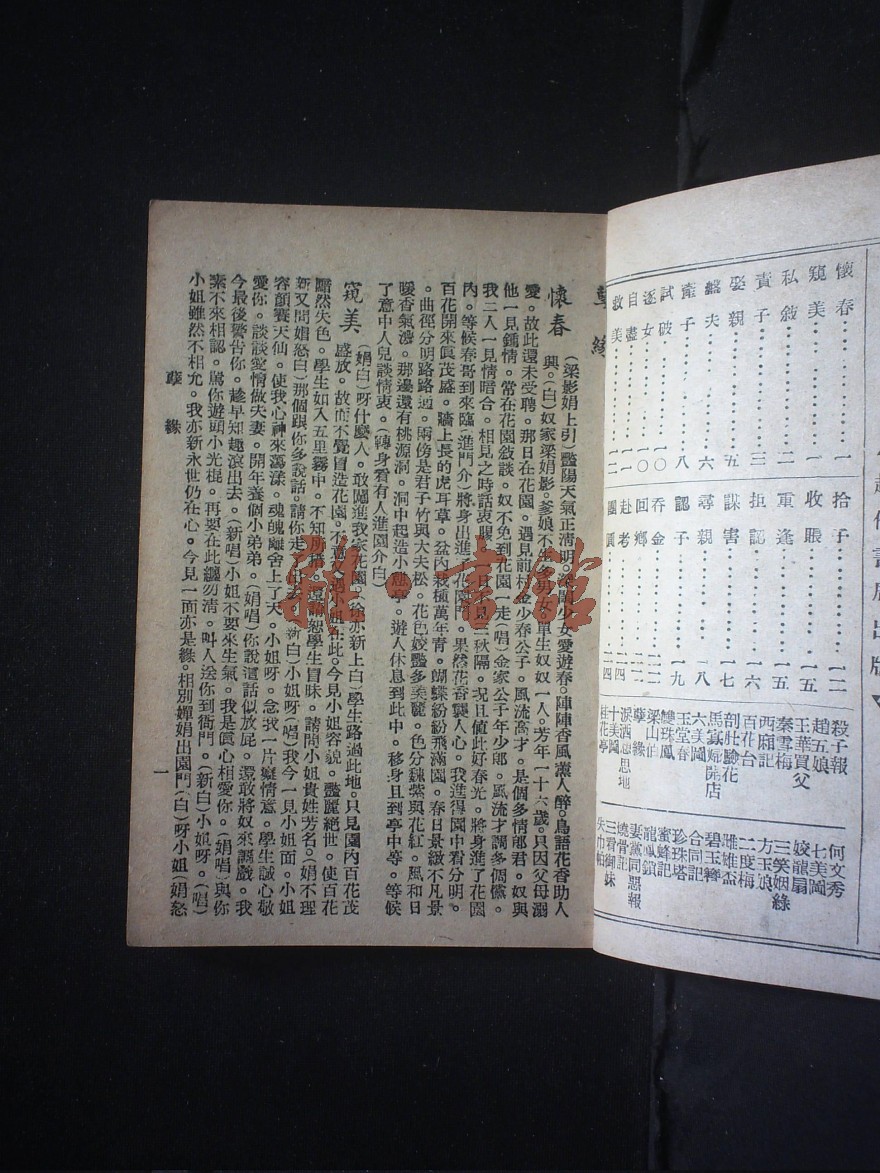 懷春⋯⋯⋯一
窺美⋯⋯⋯一
私敍⋯⋯⋯二
責子⋯⋯⋯三
娶親⋯⋯⋯五
產子⋯⋯⋯八
試破⋯⋯⋯一〇
逐女⋯⋯⋯一〇
自盡⋯⋯⋯一一
救美⋯⋯⋯一二
拾子⋯⋯⋯一二
收賬⋯⋯⋯一五
重逢⋯⋯⋯一五
拒認
謀害
尋親
認子⋯⋯⋯一九
吞金
回鄉
赴考
團圓⋯⋯⋯二四
殺子報
趙五娘
王華買父
秦雪梅
西廂記
百花台
剖肚驗花
馬寡婦開店
六美圖
玉堂春
雙珠鳳
梁山伯
孽緣
淚洒相思地
十美圖
桂花亭
何文秀
七美圖
蛟龍扇
三笑姻緣
方玉娘
二度梅
雌雄盃
碧玉簪
合同記
珍珠塔
蜜蜂記
龍鳳鎖
妻黨同惡報
燒骨記
三看御妹
失巾帕
出版
孽緣
懷春
(梁影娟上引)豔陽天氣正清明。閨少女愛遊春。陣陣香風薰人醉。鳥語花香助人
興。(白)奴家梁娟影。爹娘不生多男女。單生奴奴一人。芳年一十六歲。只因父母溺
愛。故此還未受聘。那日在花園。遇見前村金少春公子。風流高才。是個多情郎君。奴與
他一見鍾情。常在花園敘談。奴不免到花園一走(唱)金家公子年少郎。風流才調多倜儻。
我二人一見情暗合。相見之時話衷腸。一日不見三秋隔。況且值此好春光。將身進了花園
內。等候春哥到來臨(進門介)將身出進了花園門。果然花香襲人心。我進得園中看分明。
百花開來眞茂盛。牆上長的虎耳草。盆內栽種萬年青。蝴蝶紛紛飛滿園。春日景緻不凡景
。曲徑分明路路通。兩傍是君子竹與大夫松。花色姣豔多美麗。色分魏紫與花紅。風和日
暖香氣濃。那邊還有桃源洞。洞中起造小 亭。遊人休息到此中。移身且到亭中等。等候
了意中人兒談情衷。(轉身看有人進園介白)
窺美
(娟白)呀什麼人。敢闖進我家花園。(徐亦新上白)學生路過此地。只見園內百花茂
盛放。故而不覺冒造花園。不意 小姐在此。今見小姐容貌。豔麗絕世。使百花
黯然失色。學生如入五里霧中。不知所措。還請恕學生冒昧。請問小姐貴姓芳名。(娟不理
新又問娟怒白)那個跟你多說話。請你走 (新白)小姐呀(唱)我今一見小姐面。小姐
容顏賽天仙。使我心神來蕩漾。魂魄離舍上了天。小姐呀。念我一片癡情意。學生誠心敬
愛你。談談愛情做夫妻。開年養個小弟弟。(娟唱)你說這話似放屁。還敢將奴來調戲。我
今最後警告你。趁早知趣滾出去。(新唱)小姐不要來生氣。我是眞心相愛你。(娟唱)與你
素不來相認。罵你遊頭小光棍。再要在此纏勿清。叫人送你到衙門。(新白)小姐呀。(唱)
小姐雖然不相允。我亦新永世仍在心。今見一面亦是緣。相別嬋娟出園門(白)呀小姐(娟怒
孽緣
一
雅·書館